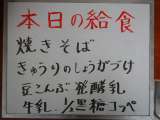 本日の給食
焼きそば
きゅうりのしょうがづけ
豆こんぶ 発酵乳
牛乳 1/2黒糖コッペ